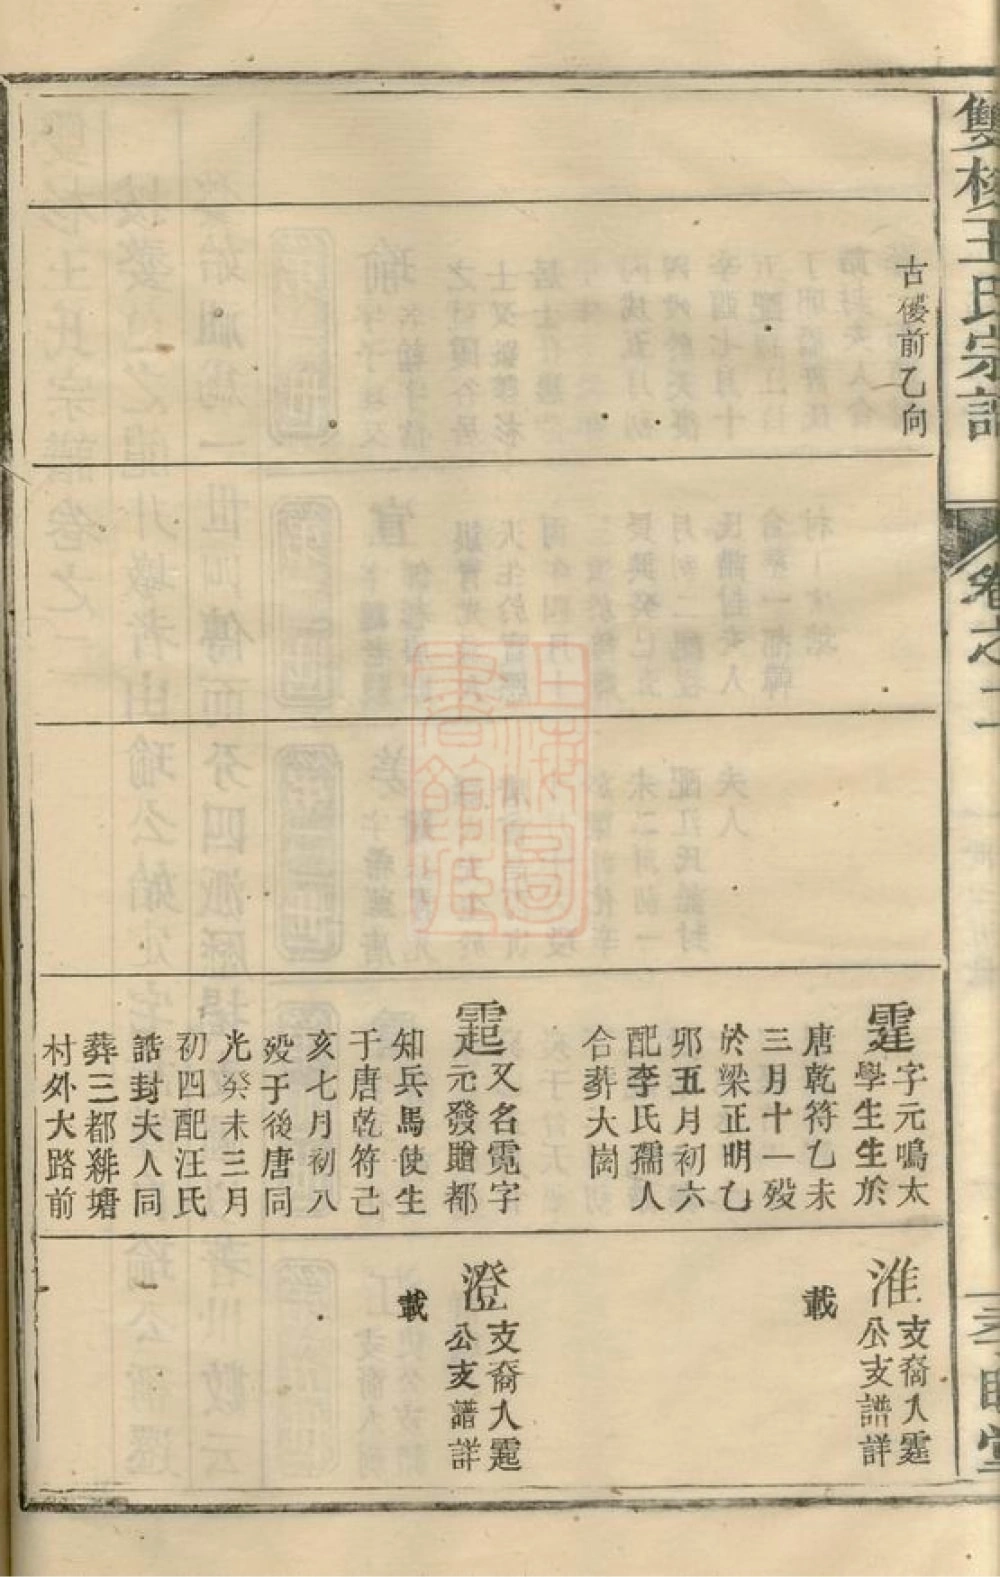 雙杉王氏宗譜
卷之二
孝睦堂
古儍前乙向
霆
字元鳴太
學生生於
唐乾符乙未
三月十一殁
於梁正明乙
邜五月初六
配李氏孺人
合葬大崗
又名霓字
元發贈都
知兵馬使生
于唐乾符己
亥七月初八
殁于後唐同
光癸未三月
初四配汪氏
誥封夫人同
葬三都緋塘
村外大路前
淮
支裔入霆
公支譜詳
載
澄
支裔入
公支譜詳
載
上海圖書館藏